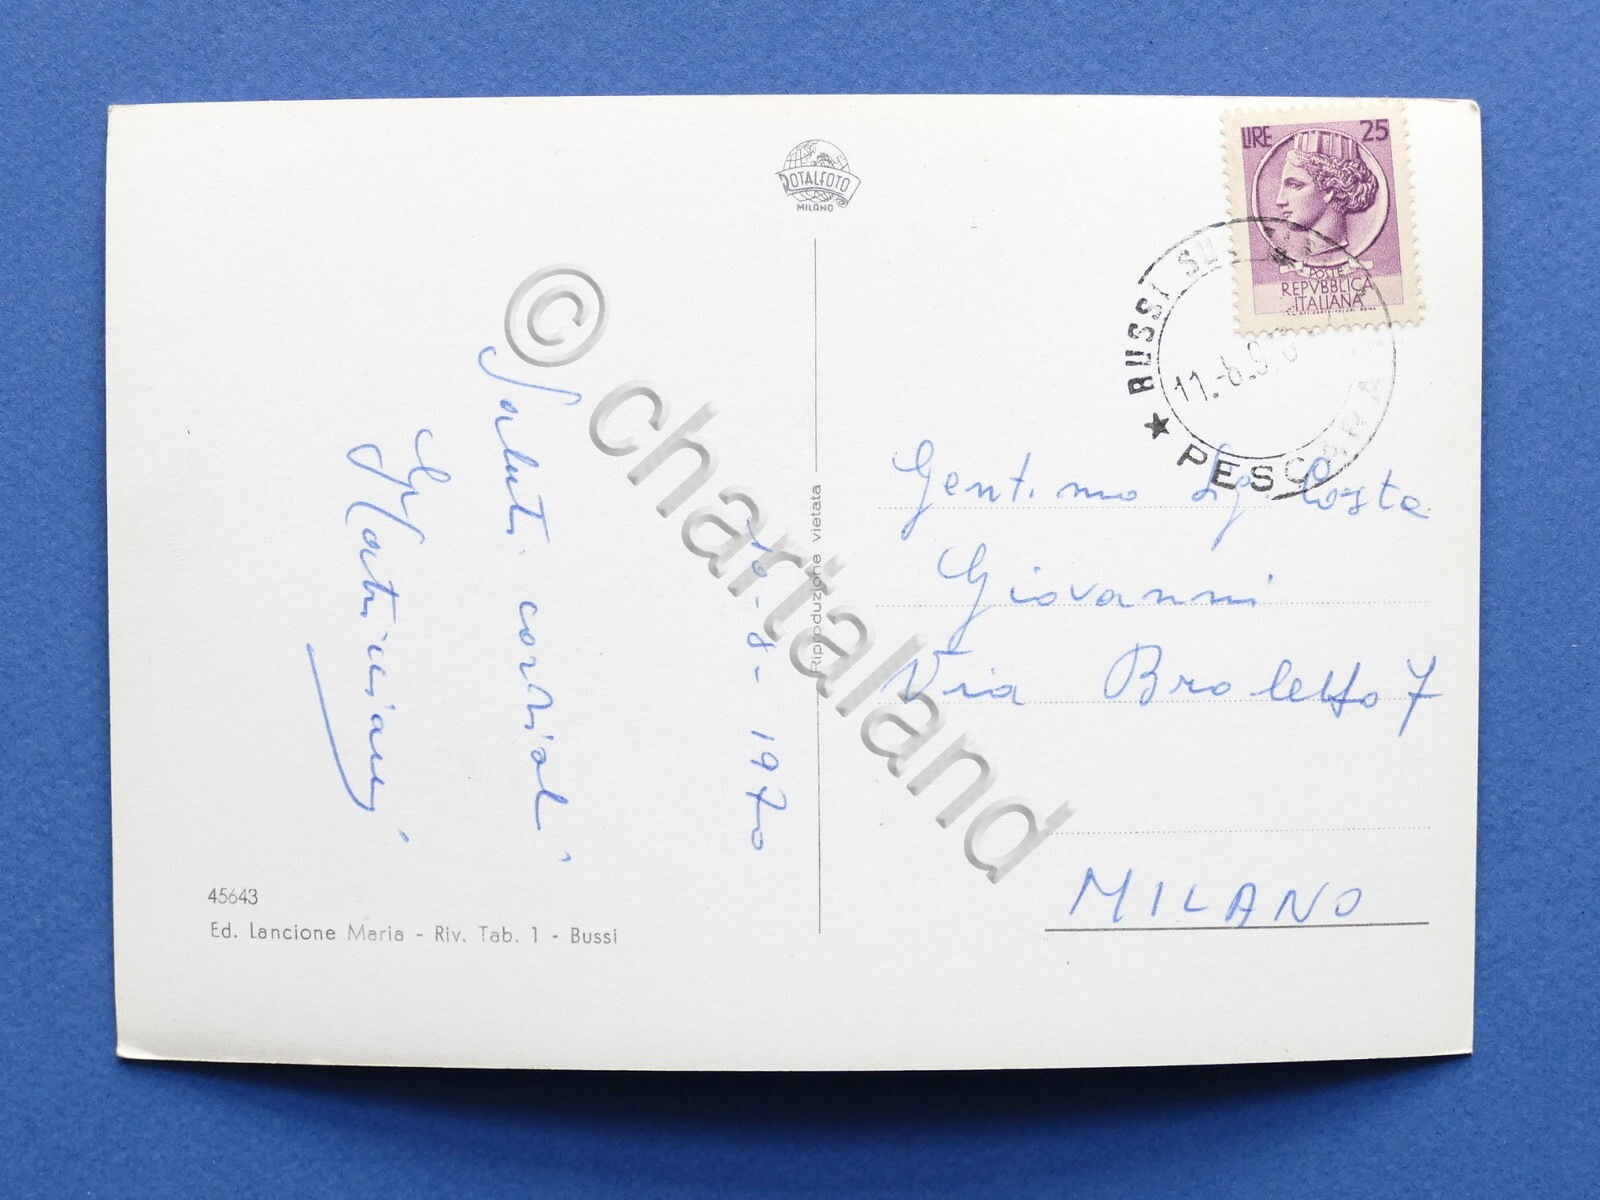 ROTALFOTO
MILANO
LIRE 25
POSTE
REPVBBLICA
ITALIANA
BUSSI SUL
PESCARA
11.-8.970
Saluti cordiali
10-8-1970
Riproduzione vietata
© chartaland
Gent.mo Sig. Costa
Giovanni
Via Broletto 7
MILANO
45643
Ed. Lancione Maria - Riv. Tab. 1 - Bussi